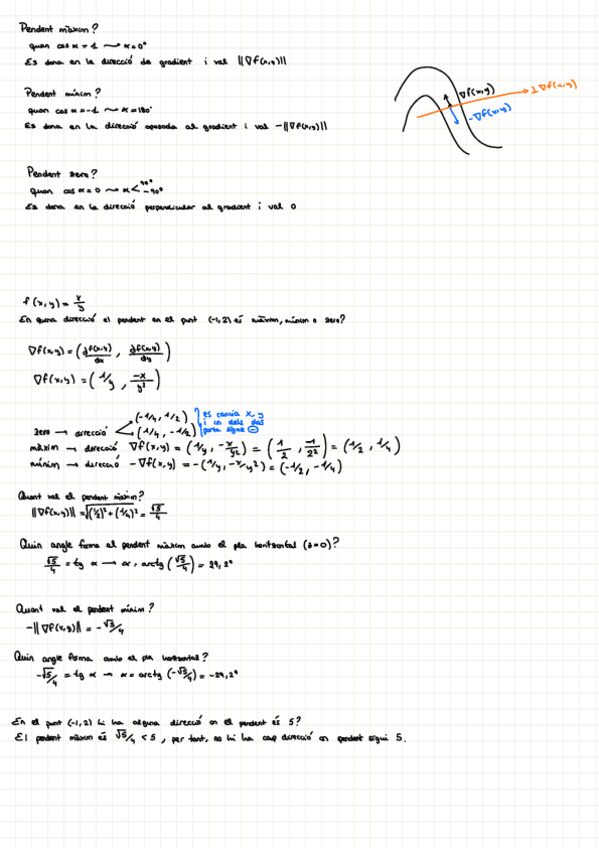 Pendent màxim?
quan cos α = 1 ⟿ α = 0°
Es dona en la direcció de gradient i val ||∇f(x,y)||
Pendent mínim?
quan cos α = -1 ⟿ α = 180°
Es dona en la direcció oposada al gradient i val -||∇f(x,y)||
∇f(x,y)
⊥ ∇f(x,y)
-∇f(x,y)
Pendent zero?
quan cos α = 0 ⟿ α < 90° -90°
Es dona en la direcció perpendicular al gradient i val 0
f(x,y) = x/y
En quina direcció el pendent en el punt (-1,2) és màxim, mínim o zero?
∇f(x,y) = (∂f(x,y)/dx , ∂f(x,y)/dy)
∇f(x,y) = (1/y , -x/y²)
zero → direcció < (-1/4, 1/2) (1/4, -1/2)
es canvia x, y
i un dels dos
porta signe ⊖
màxim → direcció ∇f(x,y) = (1/y, -x/y²) = (1/2, -1/2²) = (1/2, 1/4)
mínim → direcció -∇f(x,y) = -(1/y, -x/y²) = (-1/2, -1/4)
Quant val el pendent màxim?
||∇f(x,y)|| = √(1/2)² + (1/4)² = √5/4
Quin angle forma el pendent màxim amb el pla horitzontal (z=0)?
√5/4 = tg α → α = arctg (√5/4) = 29,2°
Quant val el pendent mínim?
-||∇f(x,y)|| = -√5/4
Quin angle forma amb el pla horitzontal?
-√5/4 = tg α → α = arctg (-√5/4) = -29,2°
En el punt (-1,2) hi ha alguna direcció on el pendent és 5?
El pendent màxim és √5/4 < 5, per tant, no hi ha cap direcció on pendent sigui 5.